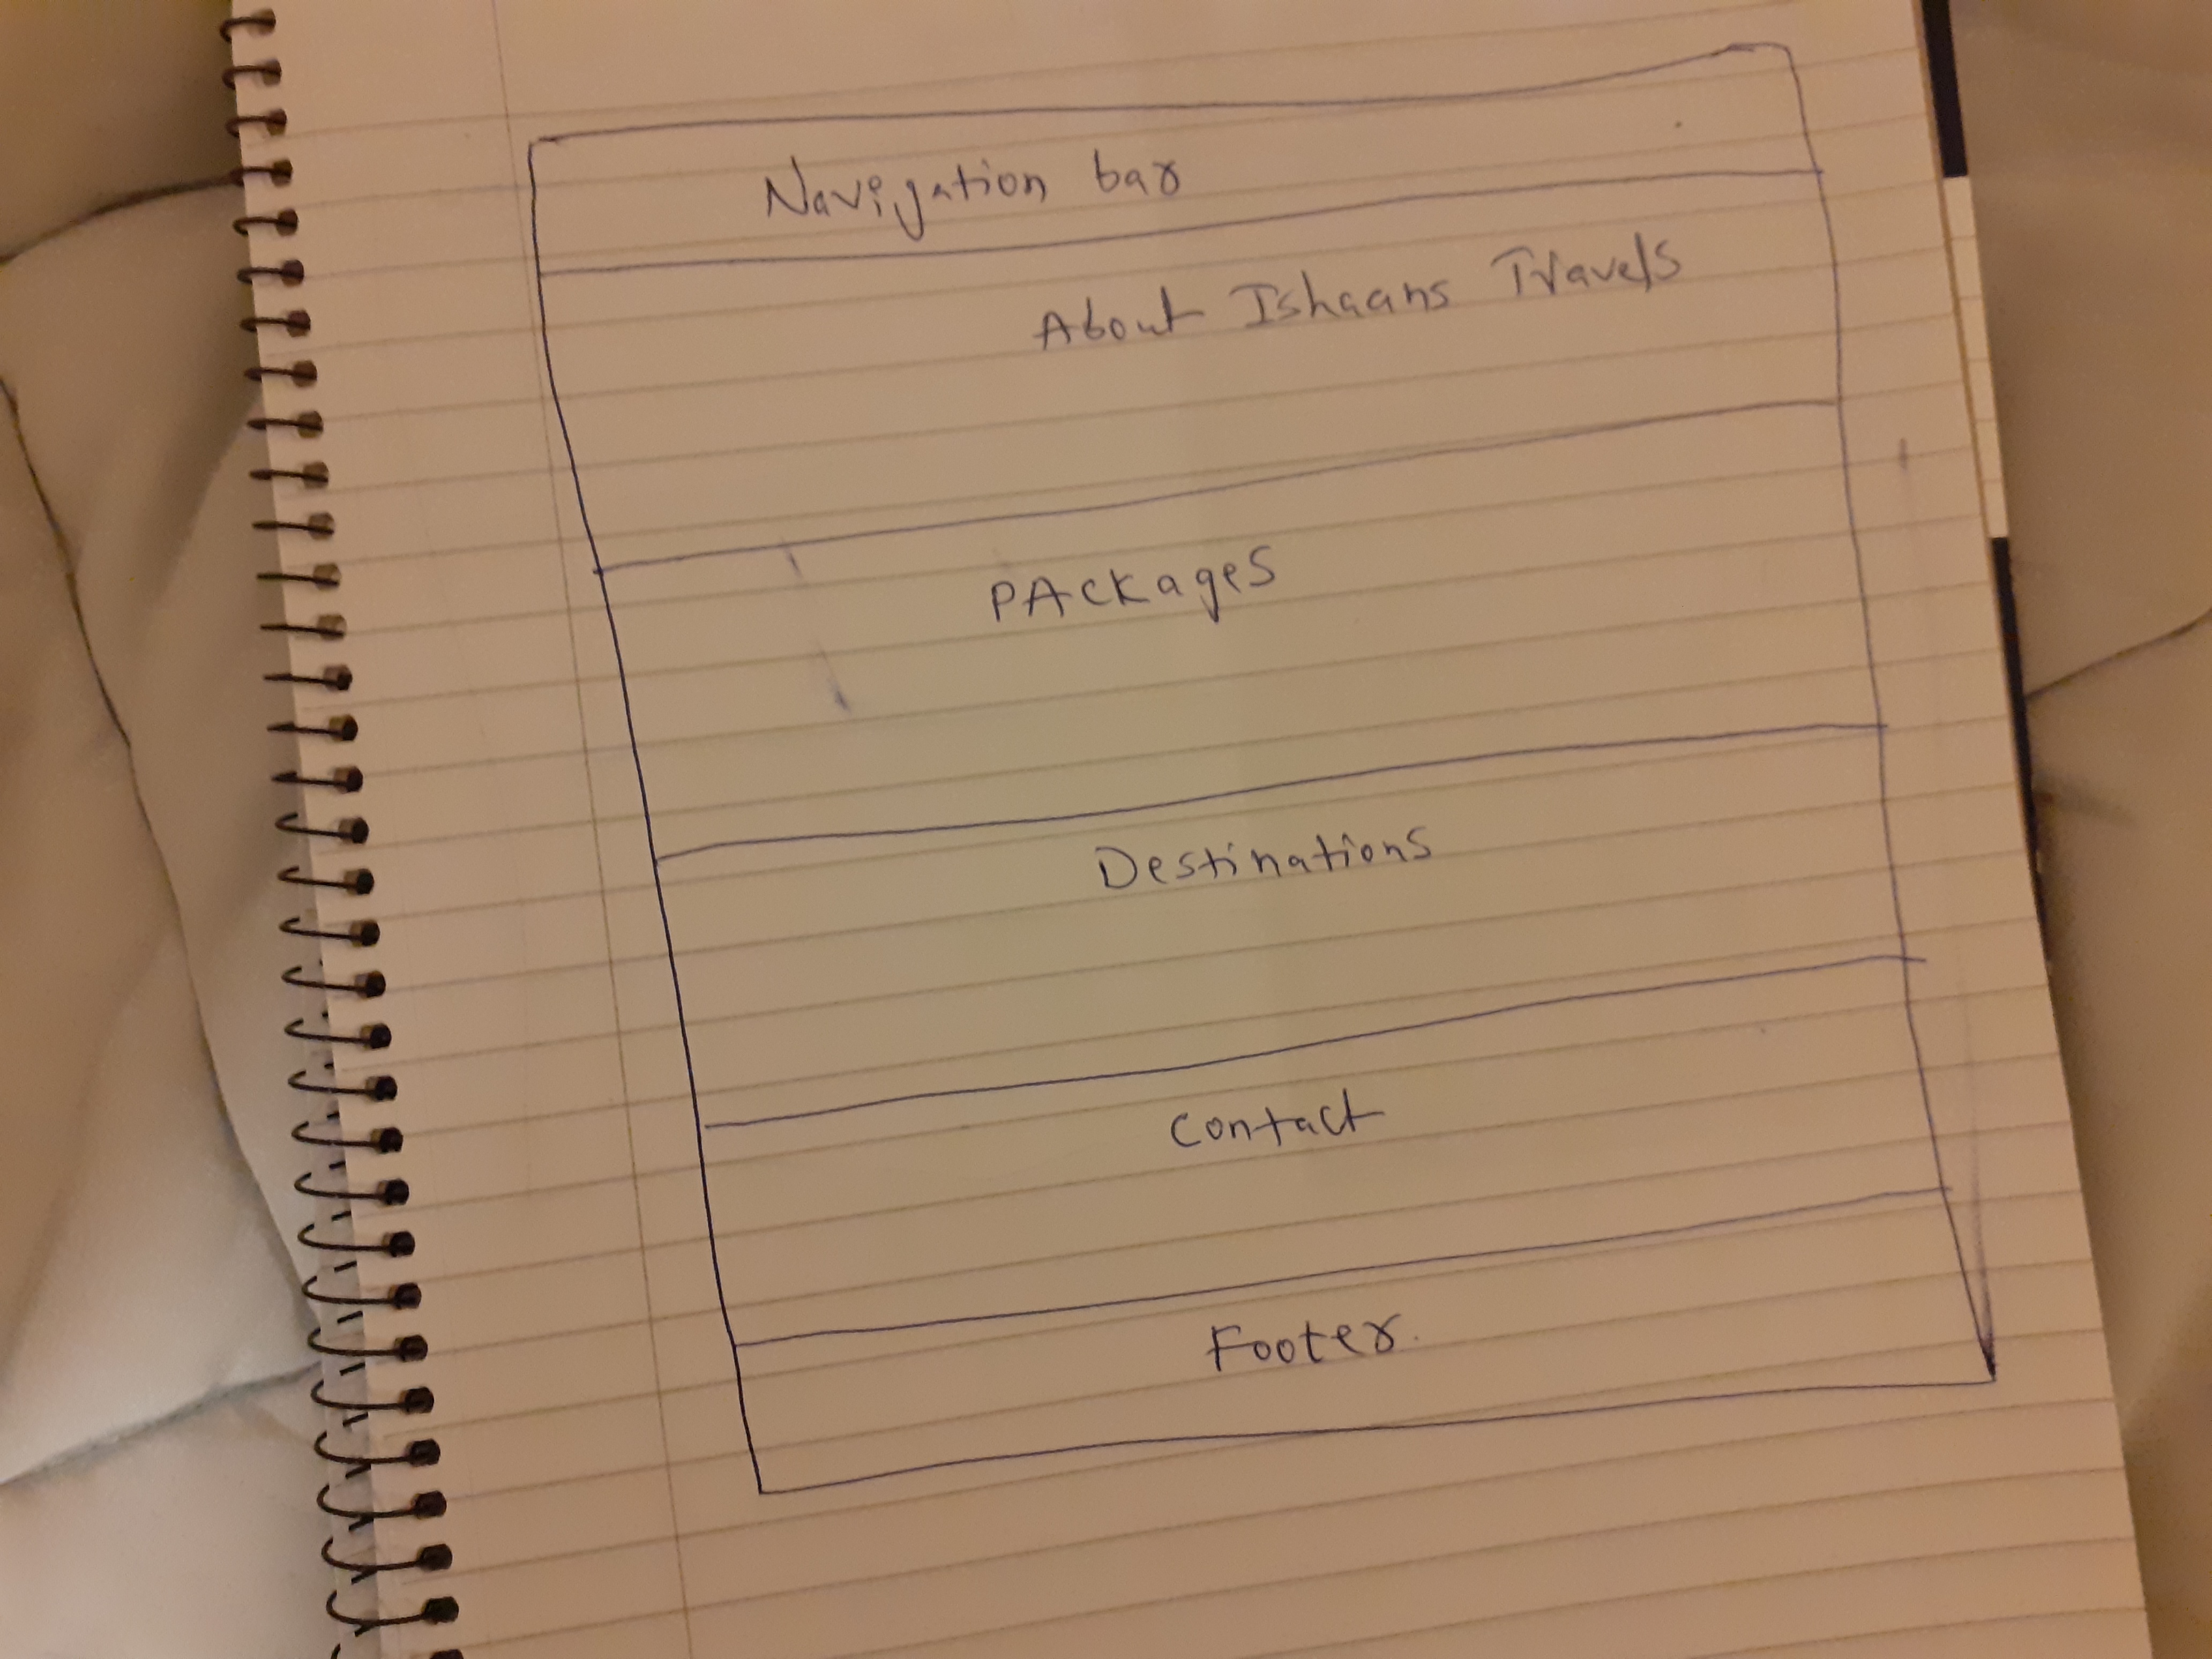 Navigation bar
About Ishaans Travels
PAckages
Destinations
Contact
Footer.